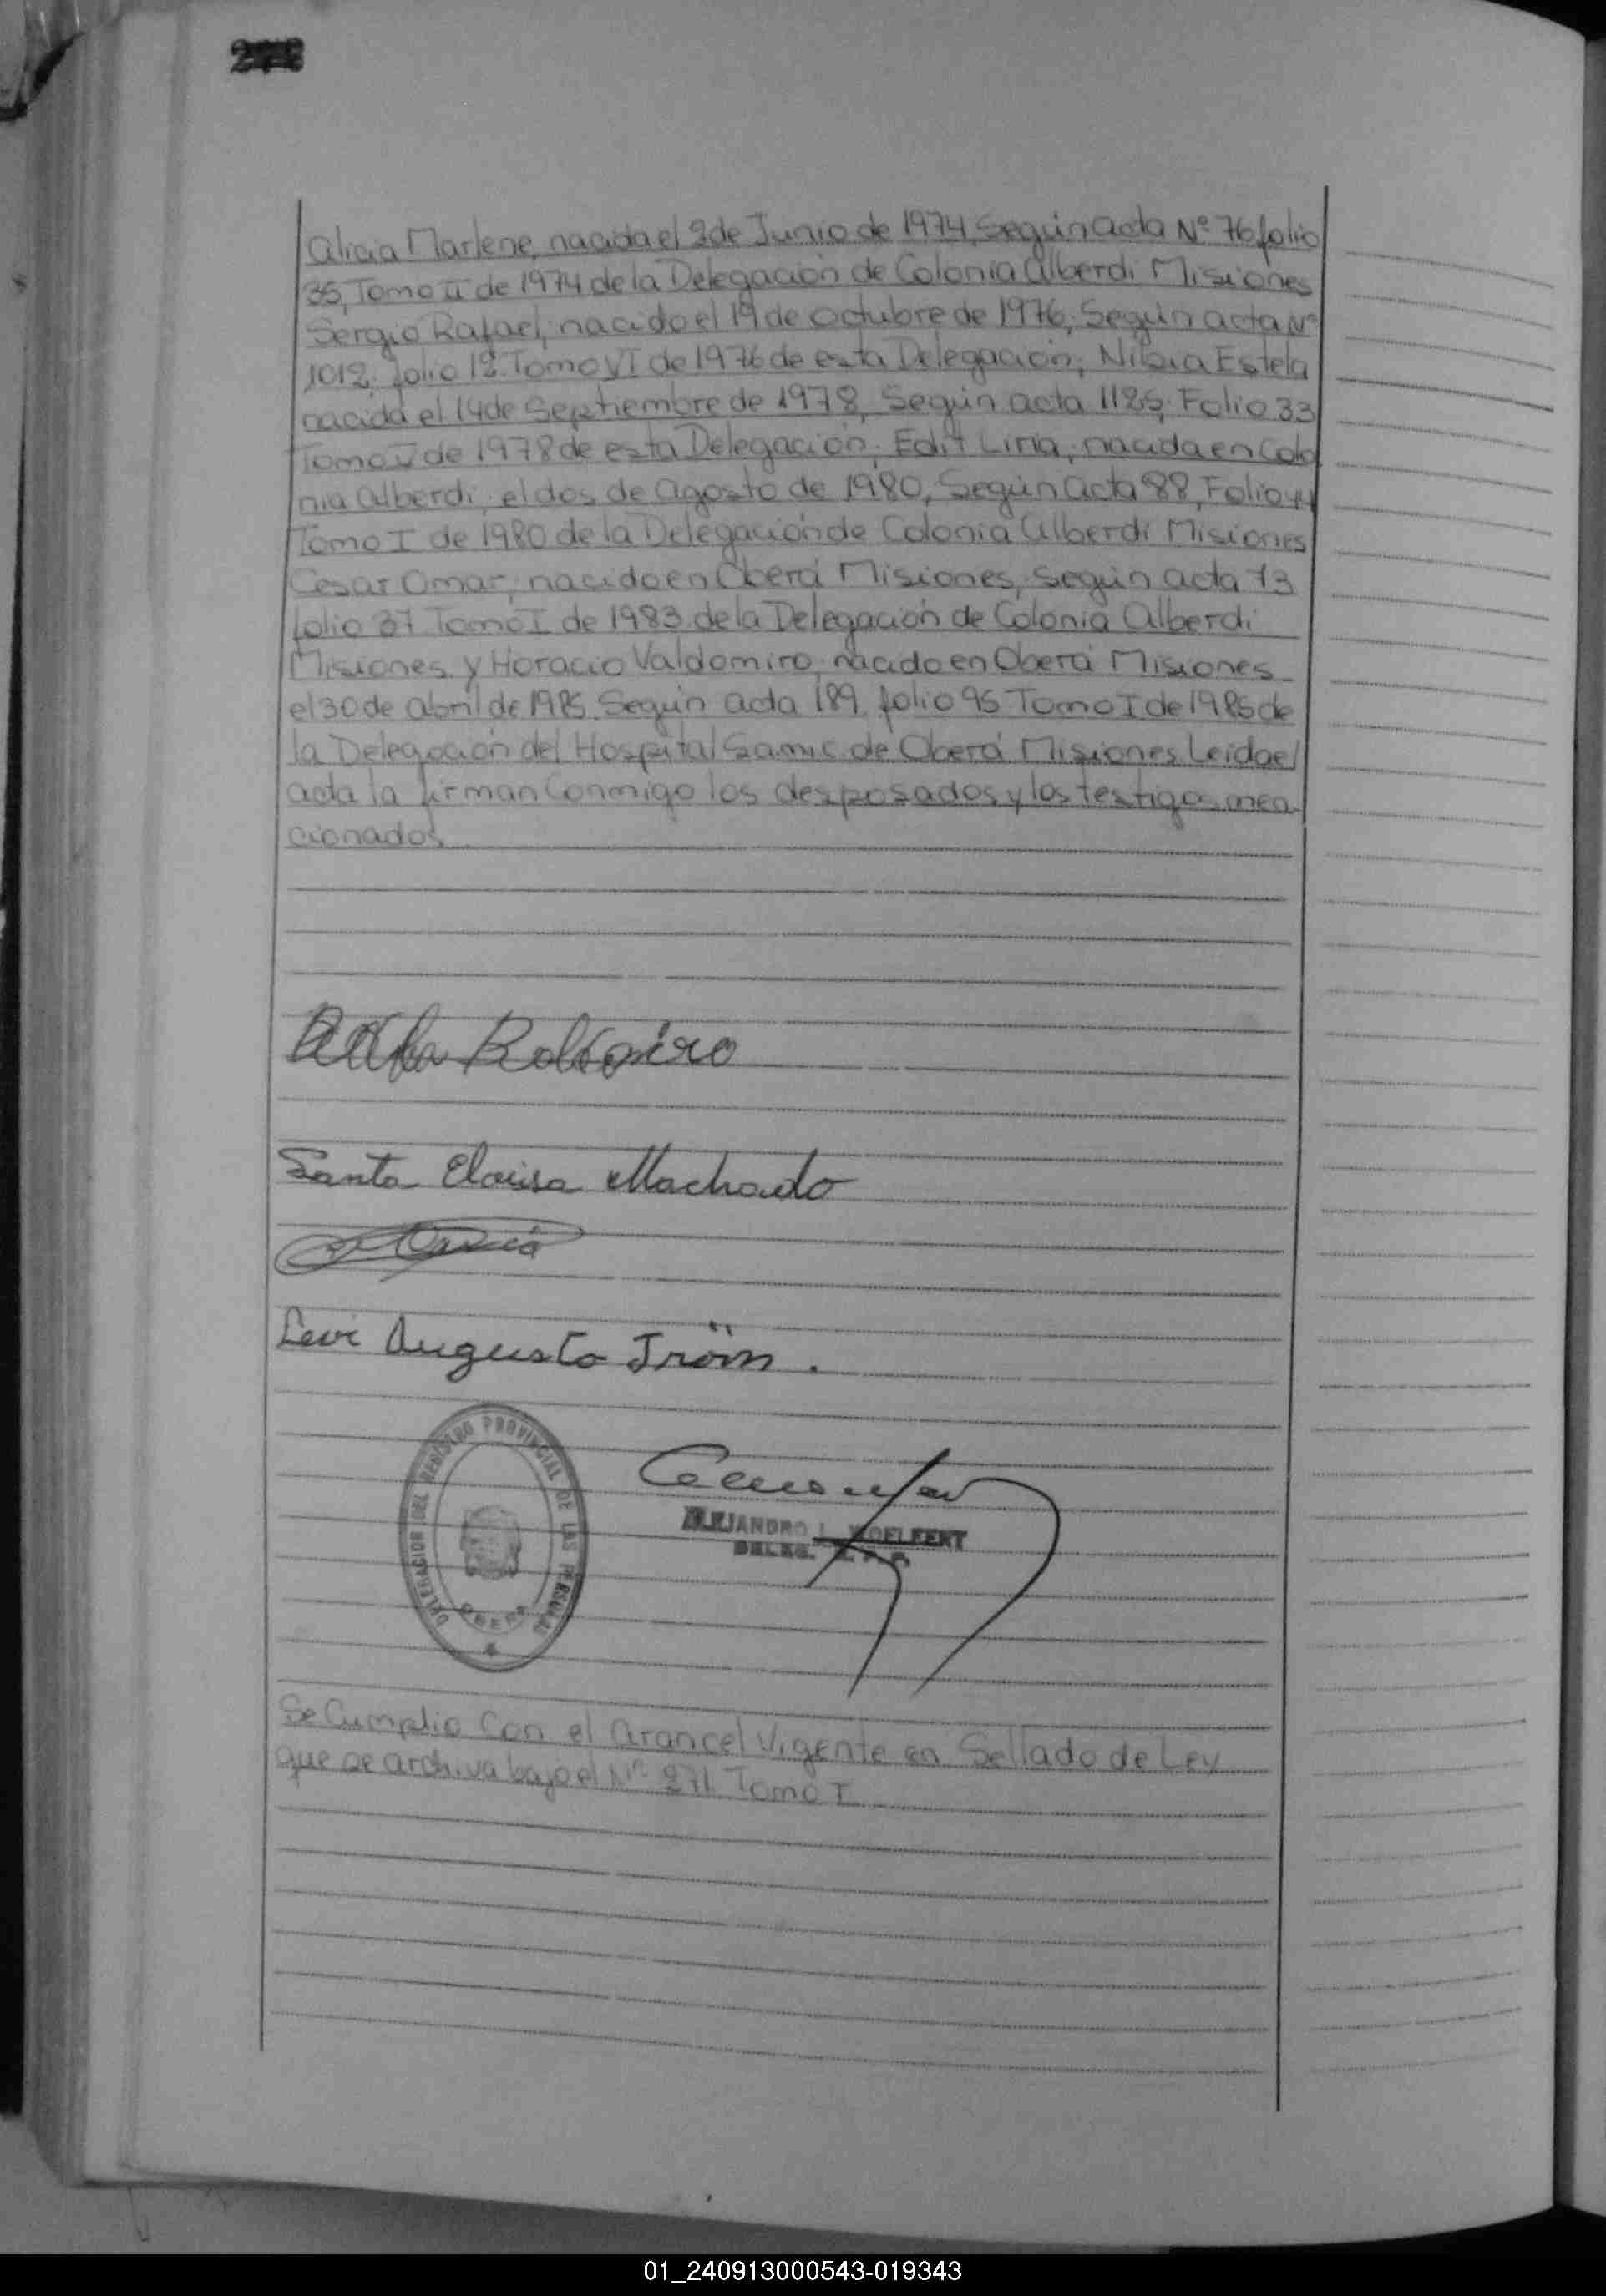 Alicia Marlene, nacida el 2 de Junio de 1974, Según acta Nº 76 folio
35, Tomo II de 1974 de la Delegación de Colonia Alberdi Misiones
Sergio Rafael, nacido el 19 de octubre de 1976, Según acta Nº
1012, folio 12 Tomo VI de 1976 de esta Delegación, Nibia Estela
nacida el 14 de Septiembre de 1978, Según acta 1185, Folio 33
Tomo V de 1978 de esta Delegación, Edit Liria, nacida en Colo
nia Alberdi, el dos de Agosto de 1980, Según Acta 88, Folio 44
Tomo I de 1980 de la Delegación de Colonia Alberdi Misiones
Cesar Omar, nacido en Oberá Misiones, Según acta 73
folio 37 Tomo I de 1983 de la Delegación de Colonia Alberdi
Misiones y Horacio Valdomiro, nacido en Oberá Misiones
el 30 de abril de 1985 Según acta 189 folio 95 Tomo I de 1985 de
la Delegación del Hospital Samic de Oberá Misiones Leida el
acta la firman Conmigo los desposados y los testigos men
cionados
Santa Eloisa Machado
Levi Augusto
DELEGACION DEL REGISTRO PROVINCIAL DE LAS PERSONAS
OBERA
ALEJANDRO L. WOELFERT
DELEG.
Se Cumplio Con el Arancel Vigente en Sellado de Ley
que se archiva bajo el Nº 271 Tomo I
01_240913000543-019343